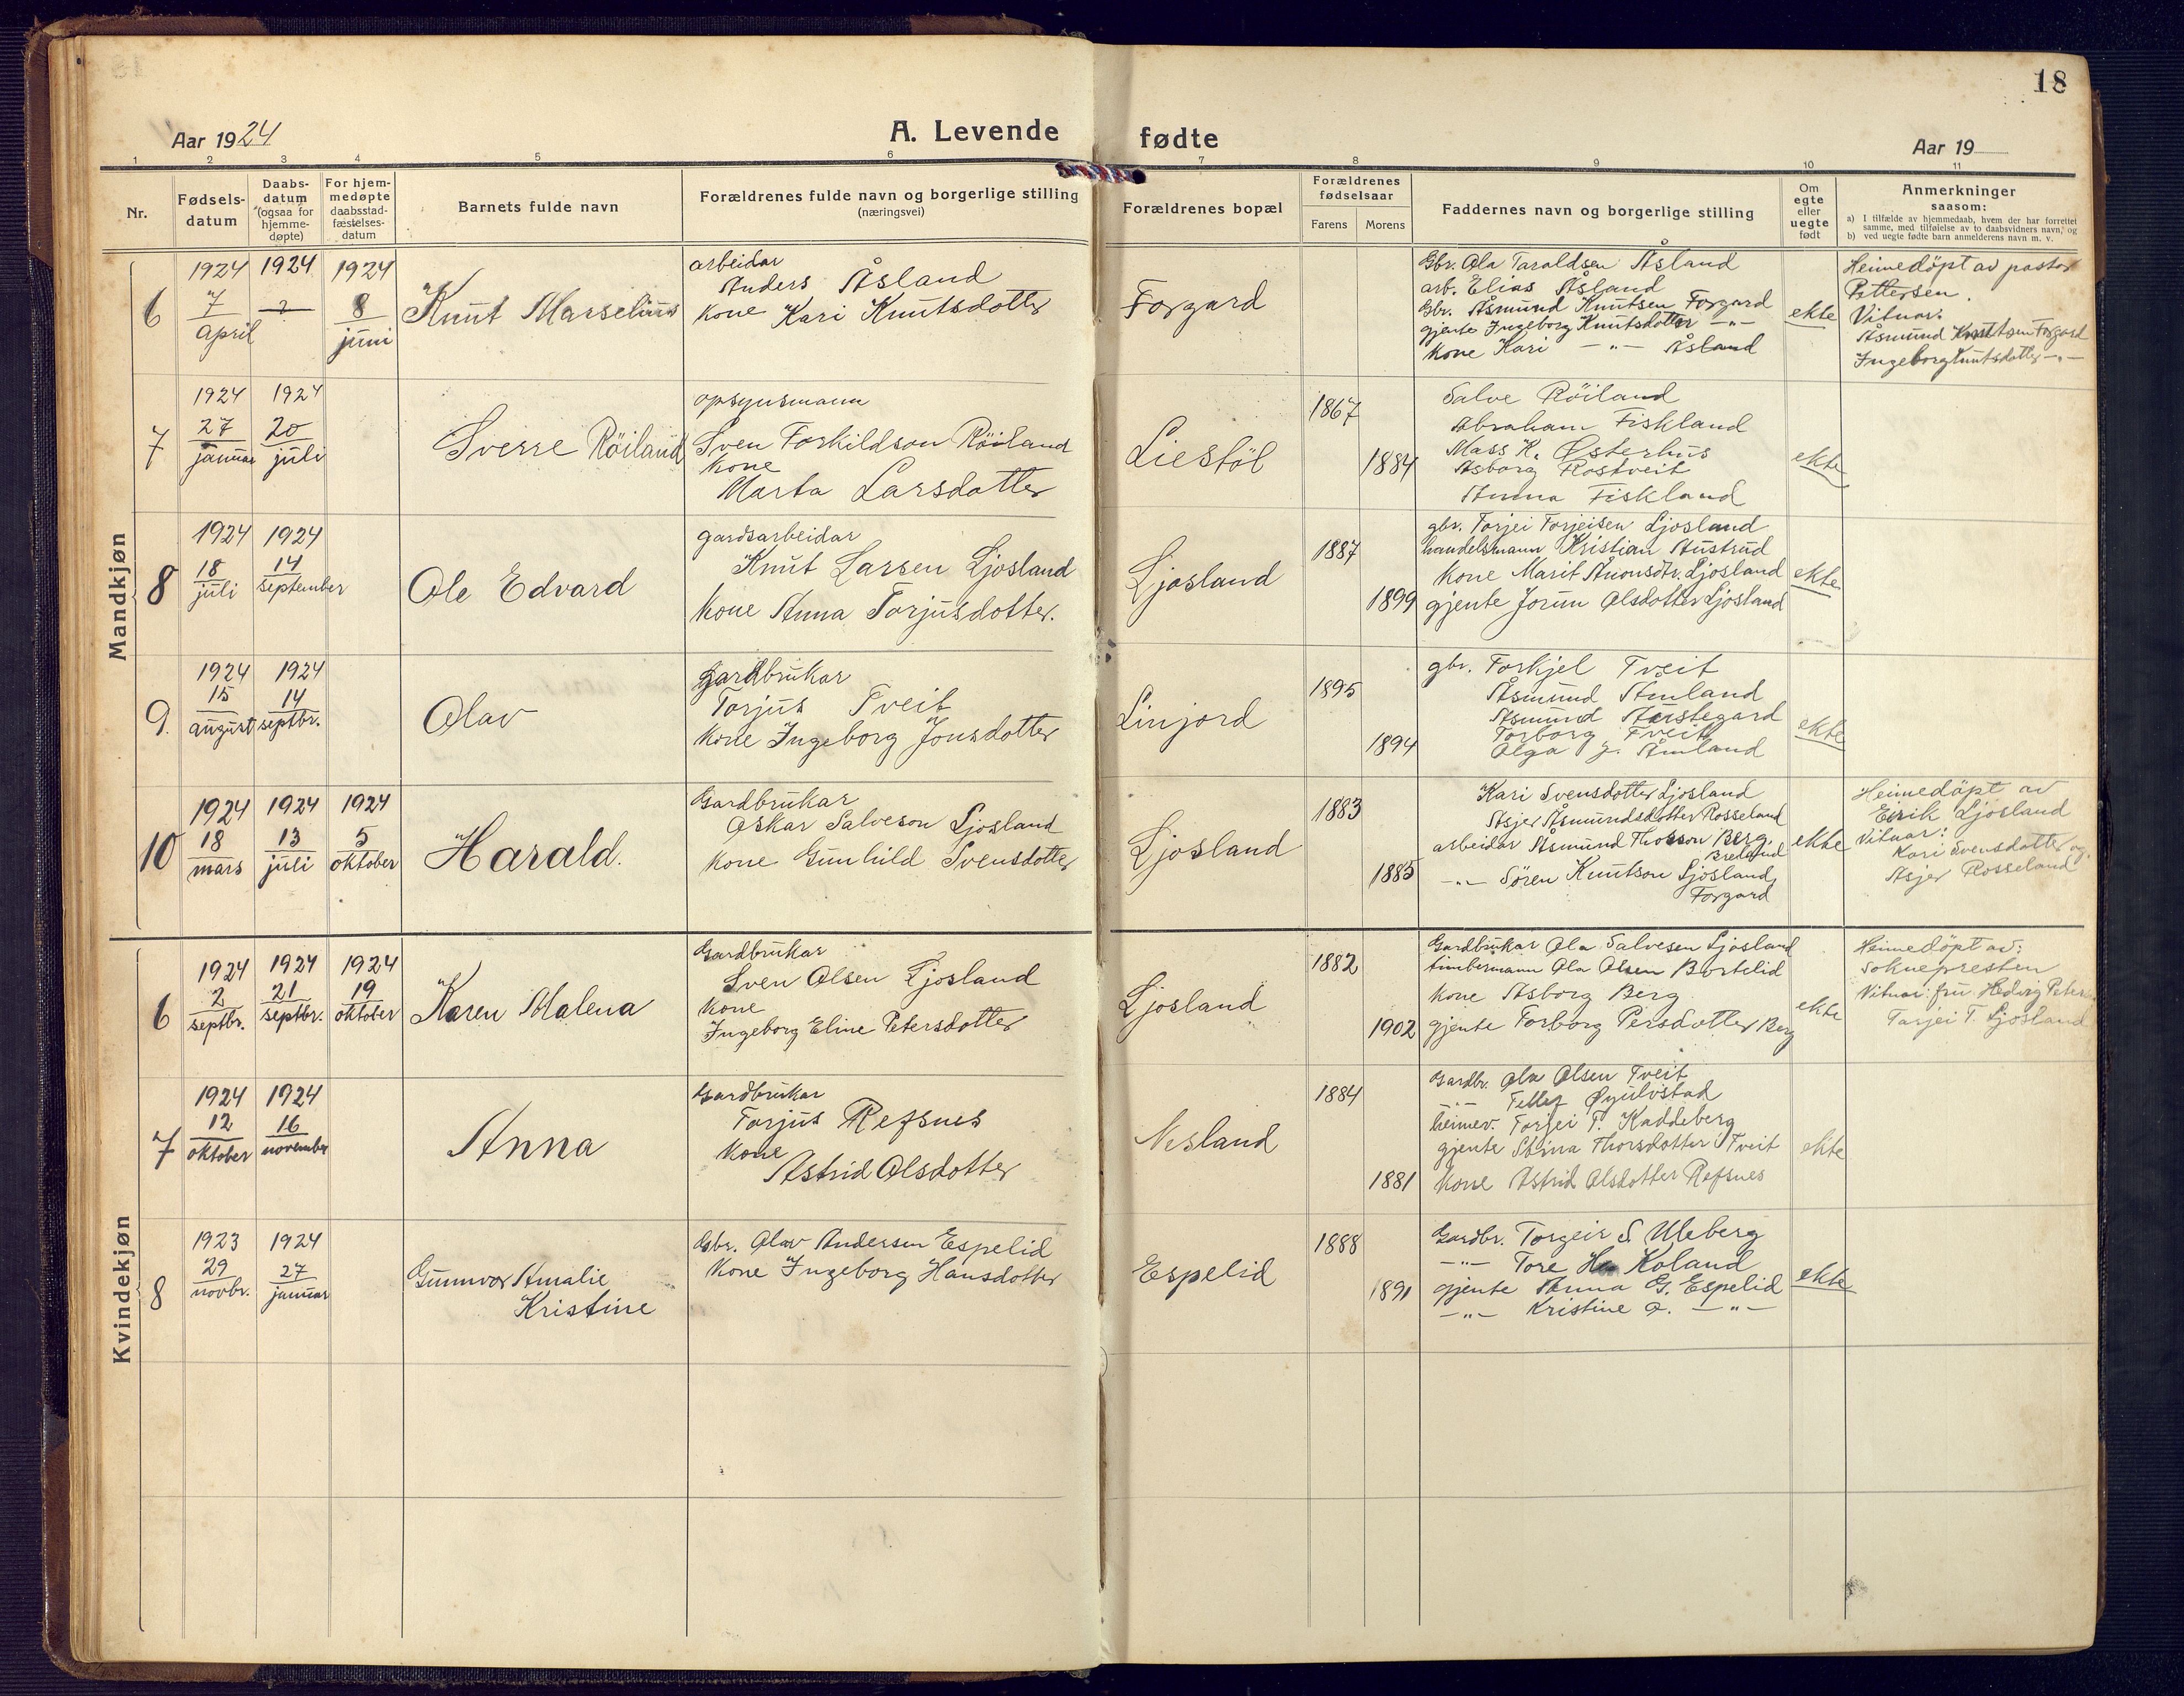 18
Aar 1924
A. Levende fødte
Aar 19
1 2 3 4 5 6 7 8 9 10 11
Nr.
Fødsels-
datum
Daabs-
datum
(ogsaa for
hjemme-
døpte)
For hjem-
medøpte
daabsstad-
fæstelses-
datum
Barnets fulde navn
Forældrenes fulde navn og borgerlige stilling
(næringsvei)
Forældrenes bopæl
Forældrenes
fødselsaar
Farens Morens
Faddernes navn og borgerlige stilling
Om
egte
eller
uegte
født
Anmerkninger
saasom:
a) I tilfælde av hjemmedaab, hvem der har forrettet
samme, med tilføielse av to daabsvidners navn, og
b) ved uegte fødte barn anmelderens navn m. v.
Mandkjøn
6
1924
7
april
1924
?
1924
8
juni
Knut Marselius
arbeidar
Anders Åsland
kone Kari Knutsdotter
Forgard
Gbr. Ola Taraldsen Åsland
arb. Elias Åsland
Gbr. Åsmund Knutsen Forgard
gjente Ingeborg Knutsdotter —"—
kone Kari —"— Åsland
ekte
Heimedöpt av pastor
Pettersen.
Vitnar:
Åsmund Knutsen Forgard
Ingeborg Knutsdotter —"—
7
1924
27
januar
1924
20
juli
Sverre Röiland
opsynsmann
Sven Torkildson Röiland
kone
Marta Larsdotter
Liestöl
1867
1884
Salve Röiland
Abraham Fiskland
Mass K. Østerhus
Asborg Rostveit
Anna Fiskland
ekte
8
1924
18
juli
1924
14
september
Ole Edvard
gardsarbeidar
Knut Larsen Ljosland
kone Anna Torjusdotter.
Ljosland
1887
1899
gbr. Torjei Torjeisen Ljosland
handelsmann Kristian Austrud
kone Marit Ånonsdtr. Ljosland
gjente Jorun Olsdotter Ljosland
ekte
9.
1924
15
august
1924
14
septbr.
Olav
gardbrukar
Torjus Tveit
kone Ingeborg Jonsdotter
Linjord
1895
1894
gbr. Torkjel Tveit
Åsmund Åmland
Åsmund Austegard
Torborg Tveit
Olga J. Åmland
ekte
10
1924
18
mars
1924
13
juli
1924
5
oktober
Harald.
Gardbrukar
Oskar Salveson Ljosland
kone Gunhild Svensdotter
Ljosland
1883
1885
Kari Svensdotter Ljosland
Asjer Åsmundsdotter Rosseland
arbeidar Åsmund Thorson Berg,
Breland
—"— Sören Knutson Ljosland,
Forgard
ekte
Heimedöpt av
Eirik Ljosland
Vitnar:
Kari Svensdotter og.
Asjer Rosseland
Kvindekjøn
6
1924
2
septbr.
1924
21
septbr.
1924
19
oktober
Karen Malena
Gardbrukar
Sven Olsen Ljosland
kone
Ingeborg Eline Petersdotter
Ljosland
1882
1902
Gardbrukar Ola Salvesen Ljosland
timbermann Ola Olsen Bortelid
kone Asborg Berg
gjente Torborg Persdotter Berg
ekte
Heimedöpt av:
Soknepresten
Vitnar: fru Hedvig
Tarjei T. Ljosland
7
1924
12
oktober
1924
16
november
Anna
Gardbrukar
Torjus Refsnes
kone
Astrid Olsdotter
Nesland
1884
1881
Gardbr. Ola Olsen Tveit
—"— Tellef Øyulvstad
heimev. Torjei T. Kaddeberg
gjente Stina Thorsdotter Tveit
kone Astrid Olsdotter Refsnes
ekte
8
1923
29
novbr.
1924
27
januar
Gunnvor Amalie
Kristine
Gbr. Olav Andersen Espelid
kone Ingeborg Hansdotter
Espelid
1888
1891
Gardbr. Torgeir S. Uleberg
—"— Tore H. Koland
gjente Anna G. Espelid
—"— Kristine A. —"—
ekte